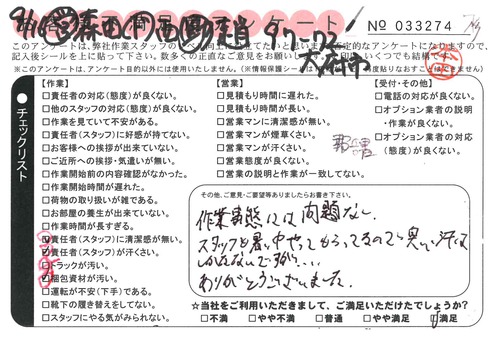 アンケート
№ 033274
このアンケートは、弊社作業スタッフの
記入後シールを上に貼って下さい。数多くの正直なご意見をお願いします。
※このアンケートは、アンケート目的以外には使用いたしません。
チェックリスト
【作業】
□責任者の対応(態度)が良くない。
□他のスタッフの対応(態度)が良くない。
□作業を見ていて不安がある。
□責任者(スタッフ)に好感が持てない。
□お客様への挨拶が出来ていない。
□ご近所への挨拶・気遣いが無い。
□作業開始前の内容確認がなかった。
□作業開始時間が遅れた。
□荷物の取り扱いが雑である。
□お部屋の養生が出来ていない。
□作業時間が長すぎる。
☑責任者(スタッフ)に清潔感が無い。
☑責任者(スタッフ)が汗くさい。
□トラックが汚い。
☑梱包資材が汚い。
□運転が不安(下手)である。
□靴下の履き替えをしてない。
□スタッフにやる気がみられない。
【営業】
□見積もり時間に遅れた。
□見積もり時間が長い。
□営業マンに清潔感が無い。
□営業マンが煙草くさい。
□営業マンが汗くさい。
□営業態度が良くない。
□営業の説明と作業が一致してない。
【受付・その他】
□電話の対応が良くない。
□オプション業者の説明
・作業が良くない。
□オプション業者の対応
(態度)が良くない。
その他、ご意見・ご要望等ありましたらお書き下さい。
作業実態には問題なし。
スタッフも暑い中やってもらってるので、臭い、汗は
しかたないですが、...
ありがとうございました。
☆当社をご利用いただきまして、ご満足いただけたでしょうか?
□不満 □やや不満 □普通 □やや満足 ☑満足